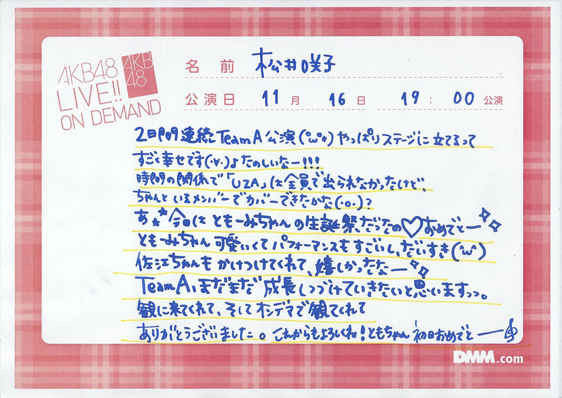 AKB48
LIVE!!
ON DEMAND
AKB
48
名 前 松井咲子
公演日 11月 16日 19:00公演
2日間連続TeamA公演(°ω°)やっぱりステージに立てるって
すごく幸せです(・∀・)♪たのしいなー!!!
時間の関係で「UZA」は全員で出られなかったけど、
ちゃんといるメンバーでカバーできたかな(・o・)?
あ☆今日はともーみちゃんの生誕祭だったの♡おめでとー
ともーみちゃん可愛いくてパフォーマンスもすごいし、だいすき(°ω°)
佐江ちゃんもかけつけてくれて、嬉しかったなー
TeamA、まだまだ成長しつづけていきたいと思いますっっ。
観に来てくれて、そしてオンデマで観てくれて
ありがとうございました。これからもよろしくね!ともちゃん初日おめでとー
DMM.com